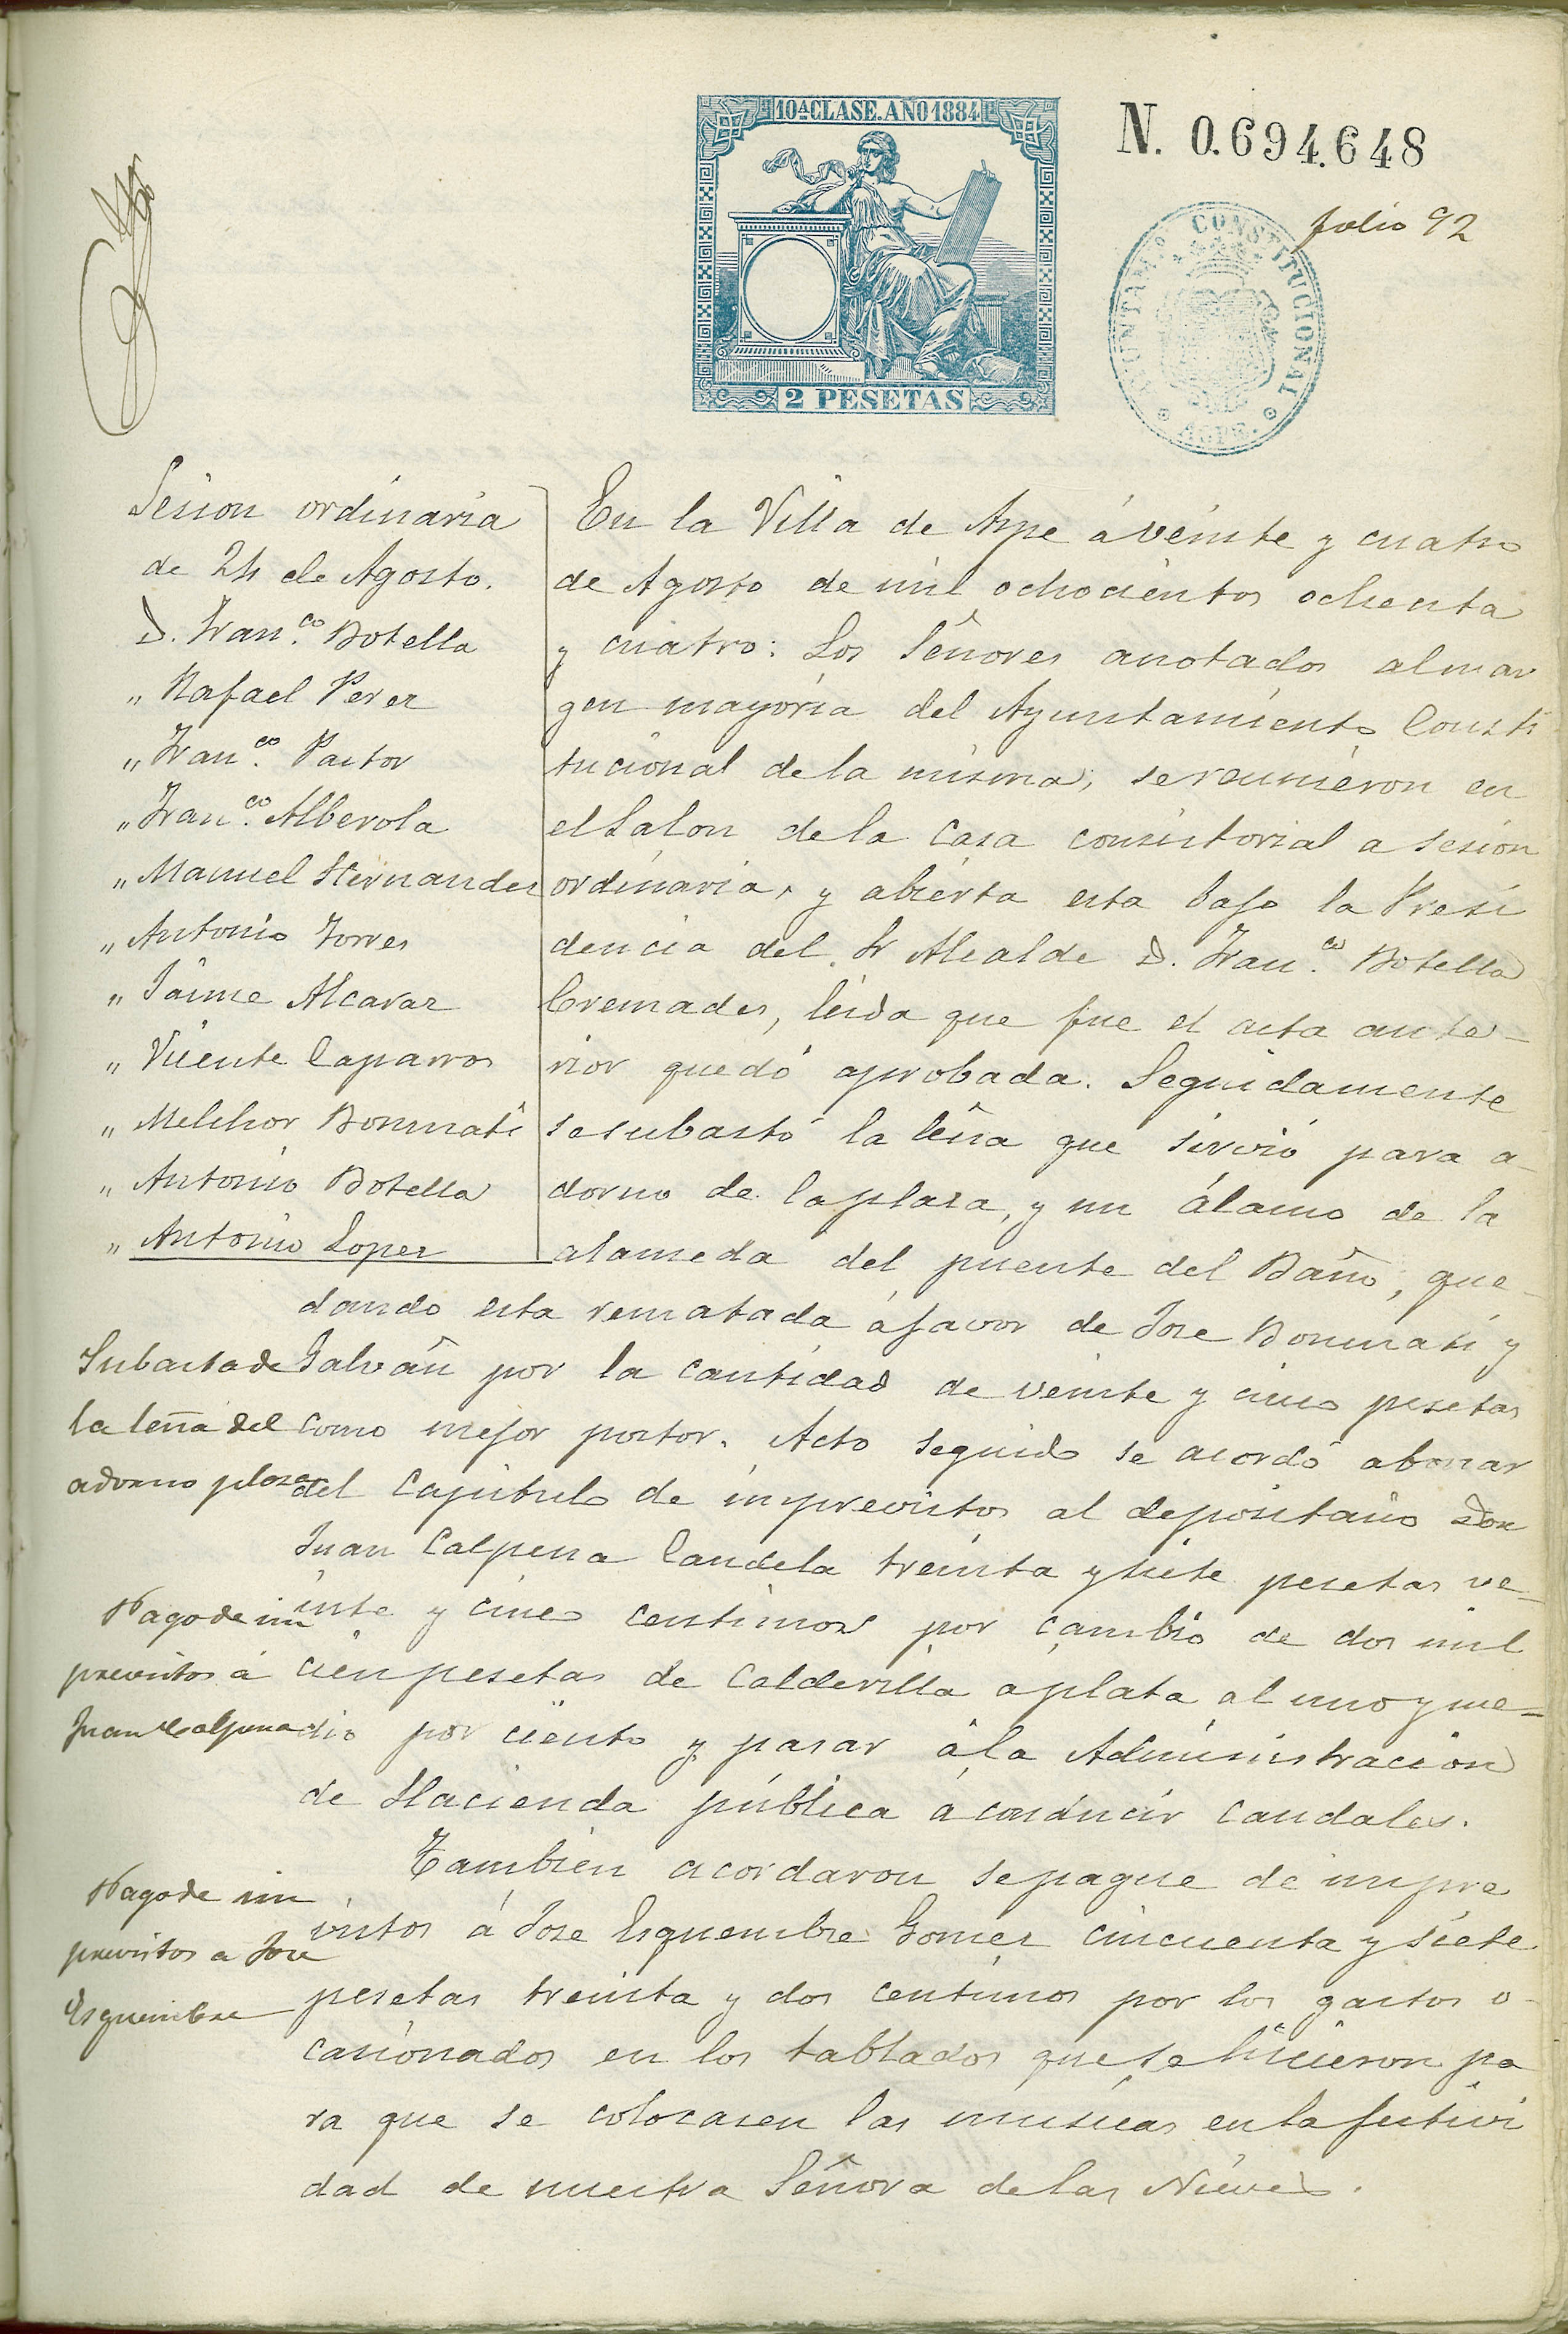 10ª CLASE. AÑO 1884
2 PESETAS
N. 0.694.648
folio 92
AYUNTAMº CONSTITUCIONAL
ASPE.
Sesion ordinaria
de 24 de Agosto.
D. Franco. Botella
" Rafael Perez
" Franco. Pastor
" Franco. Alberola
" Manuel Hernandez
" Antonio Torres
" Jaime Alcaraz
" Vicente Caparros
" Melchor Bonmati
" Antonio Botella
" Antonio Lopez
En la Villa de Aspe á veinte y cuatro
de Agosto de mil ochocientos ochenta
y cuatro: Los Señores anotados al mar
gen mayoría del Ayuntamiento Consti
tucional de la misma, se reunieron en
el Salon de la Casa consistorial a sesion
ordinaria, y abierta esta bajo la Presi
dencia del Sr Alcalde D. Franco. Botella
Cremades, leida que fue el acta ante-
rior quedó aprobada. Seguidamente
se subastó la leña que sirvió para a-
dorno de la plaza, y un álamo de la
alameda del puente del Baño, que-
dando esta rematada á favor de Jose Bonmati y
Galvañ por la cantidad de veinte y cinco pesetas
como mejor postor. Acto seguido se acordó abonar
del Capitulo de imprevistos al depositario Don
Juan Calpena Candela treinta y siete pesetas ve-
inte y cinco centimos por cambio de dos mil
cien pesetas de Calderilla á plata al uno y me-
dio por ciento y pasar á la Administracion
de Hacienda pública á conducir caudales.
Tambien acordaron se pague de impre
vistos á Jose Esquembre Gomez cincuenta y siete
pesetas treinta y dos centimos por los gastos o-
casionados en los tablados que se hicieron pa
ra que se colocasen las músicas en la festivi
dad de nuestra Señora de las Nieves.
Subasta de
la leña del
adorno plaza
Pago de im
previstos á
Juan Calpena
Pago de im
previstos a Jose
Esquembre